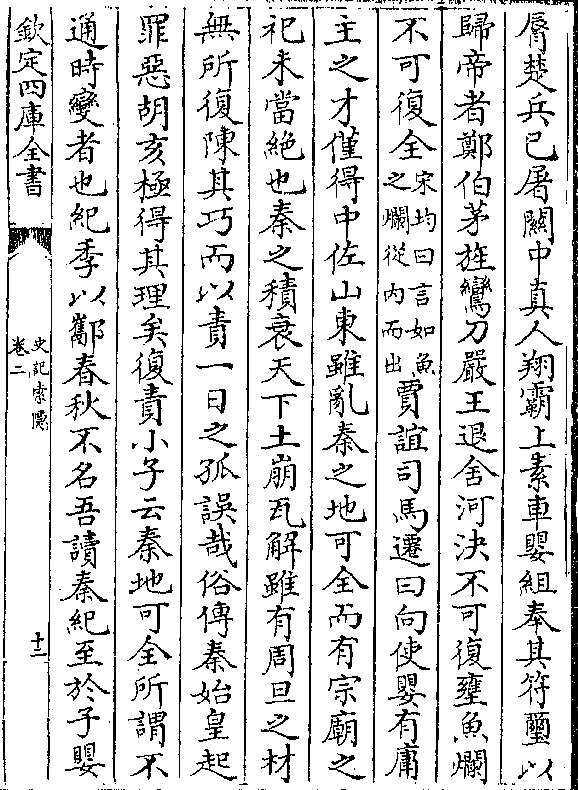 脣楚兵已屠關中真人翔霸上素車嬰組奉其符璽以
歸帝者鄭伯茅旌鸞刀嚴王退舍河決不可復壅魚爛
不可復全宋均曰言如魚之爛從内而出賈誼司馬遷曰向使嬰有庸
主之才僅得中佐山東雖亂秦之地可全而有宗廟之
祀未當絶也秦之積衰天下土崩瓦解雖有周旦之材
無所復陳其巧而以責一日之孤誤哉俗傳秦始皇起
罪惡胡亥極得其理矣復責小子云秦地可全所謂不
通時變者也紀季以酅春秋不名吾讀秦紀至於子嬰
欽定四庫全書
史記索隱
卷二
十二